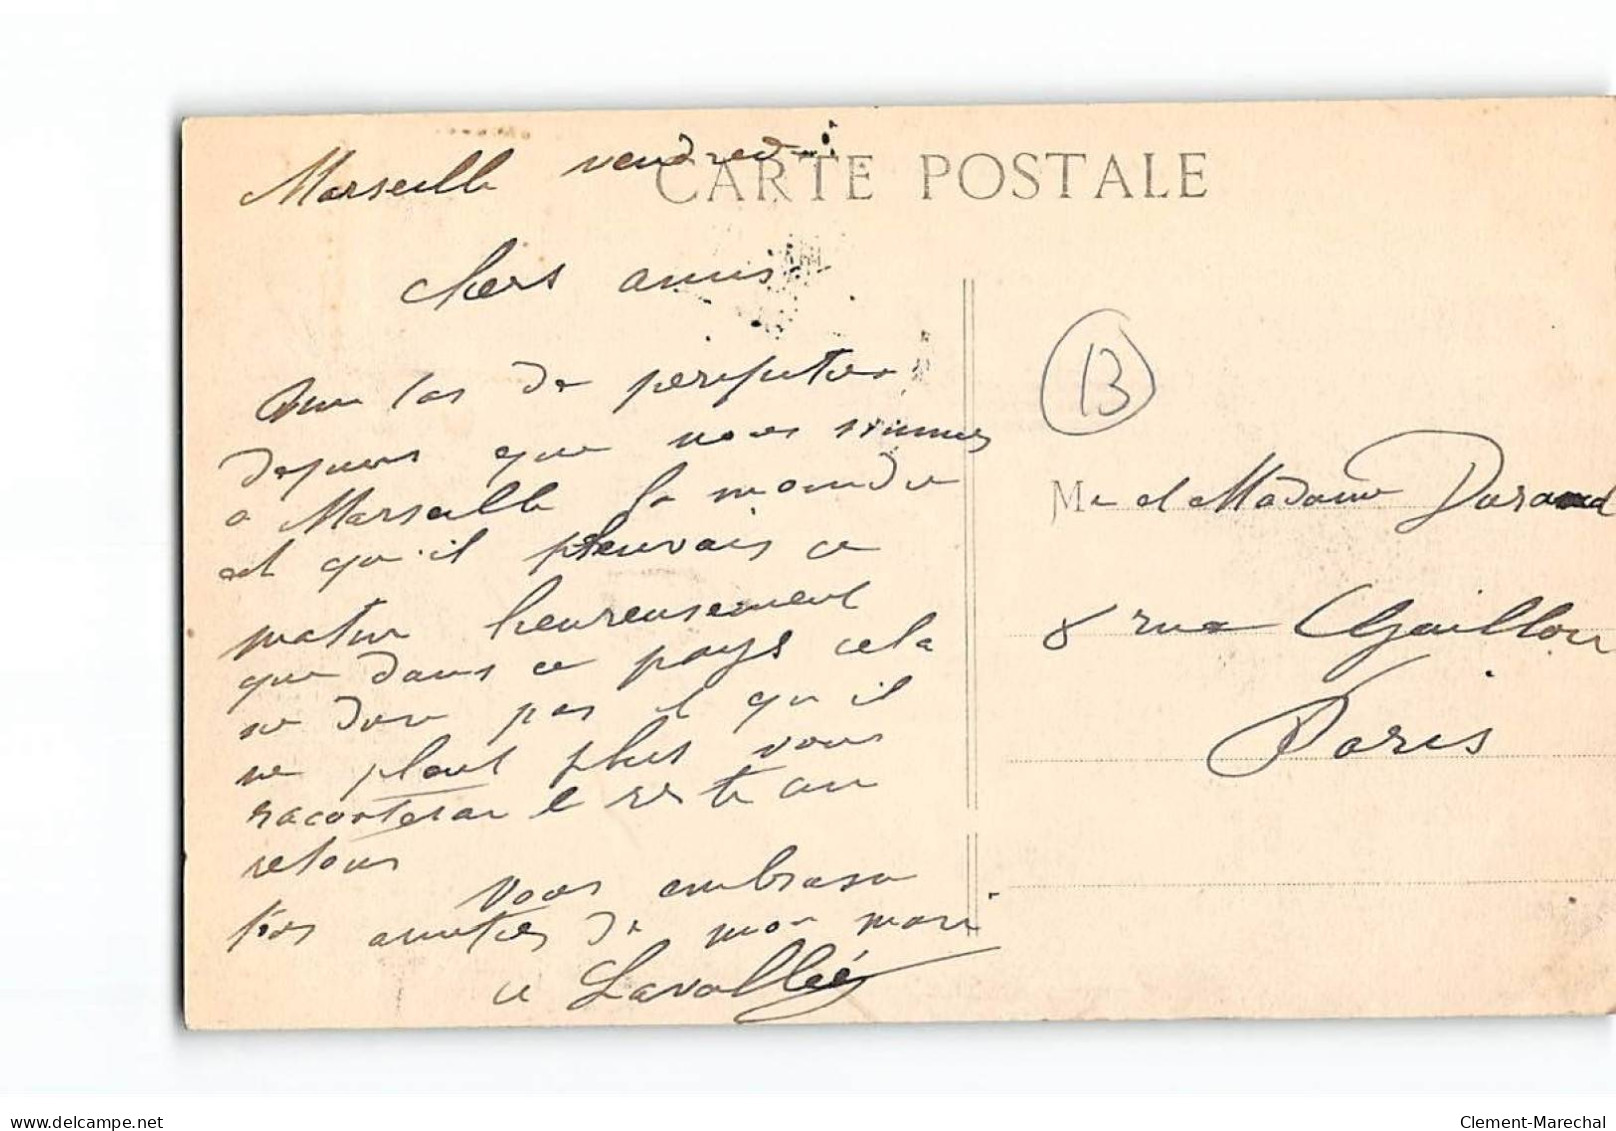 CARTE POSTALE
Marseille vendredi
Chers amis
que nous sommes
a Marseille la moindre
et qu'il pleuvais ce
matin heureusement
que dans ce pays cela
ne dure pas et qu'il
ne pleut plus vous
raconterai le reste au
retour
Vous embrasse
amities de mon mari
Lavallée
B
M e et Madame Durand
8 rue Gaillon
Paris
delcampe.net
Clement-Marechal